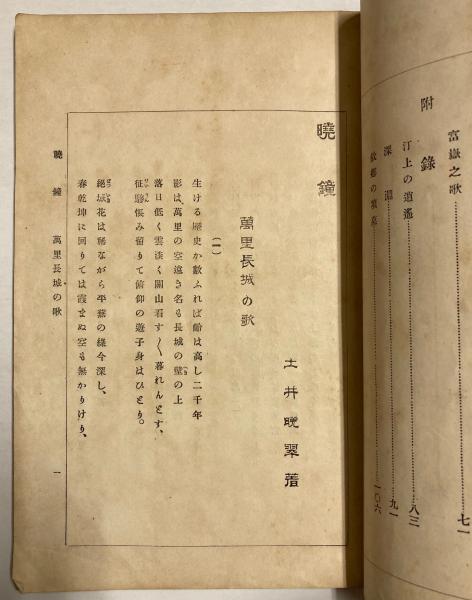 附錄
富嶽之歌……………………七一
汀上の逍遙……………………八三
深淵……………………九一
故鄕の墳墓……………………一〇六
曉鐘
土井晚翠著
萬里長城の歌
(一)
生ける歷史か數ふれば齡は高し二千年
影は萬里の空遠き名も長城の壁の上
落日低く雲淡く關山看す〱暮れんとす、
征驂悵み留りて俯仰の遊子身はひとり。
絕域花は稀ながら平蕪の綠今深し、
春乾坤に回りては霞まぬ空も無かりけり、
曉鐘 萬里長城の歌
一